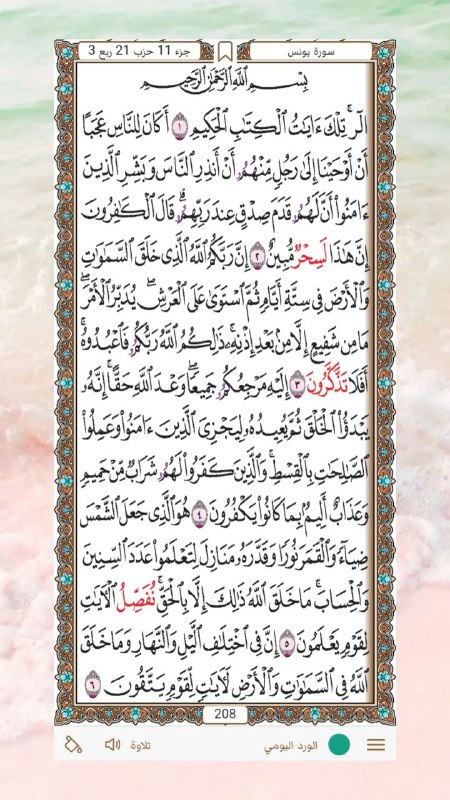 سورة يونس
جزء 11 حزب 21 ربع 3
بِسْمِ اللَّهِ الرَّحْمَٰنِ الرَّحِيمِ
الٓر تِلْكَ ءَايَٰتُ الْكِتَٰبِ الْحَكِيمِ ١ أَكَانَ لِلنَّاسِ عَجَبًا
أَنْ أَوْحَيْنَا إِلَىٰ رَجُلٍ مِّنْهُمُۥ أَنْ أَنذِرِ النَّاسَ وَبَشِّرِ الَّذِينَ
ءَامَنُوا أَنَّ لَهُمُۥ قَدَمَ صِدْقٍ عِندَ رَبِّهِمُۥ قَالَ الْكَٰفِرُونَ
إِنَّ هَٰذَا لَسِحْرٌ مُّبِينٌ ٢ إِنَّ رَبَّكُمُ اللَّهُ الَّذِي خَلَقَ السَّمَٰوَٰتِ
وَالْأَرْضَ فِي سِتَّةِ أَيَّامٍ ثُمَّ اسْتَوَىٰ عَلَى الْعَرْشِ يُدَبِّرُ الْأَمْرَ
مَا مِن شَفِيعٍ إِلَّا مِنۢ بَعْدِ إِذْنِهِۦ ذَٰلِكُمُ اللَّهُ رَبُّكُمُۥ فَاعْبُدُوهُ
أَفَلَا تَذَّكَّرُونَ ٣ إِلَيْهِ مَرْجِعُكُمُۥ جَمِيعًا وَعْدَ اللَّهِ حَقًّا إِنَّهُۥ
يَبْدَؤُا الْخَلْقَ ثُمَّ يُعِيدُهُۥ لِيَجْزِيَ الَّذِينَ ءَامَنُوا وَعَمِلُوا
الصَّٰلِحَٰتِ بِالْقِسْطِ وَالَّذِينَ كَفَرُوا لَهُمُۥ شَرَابٌ مِّنْ حَمِيمٍ
وَعَذَابٌ أَلِيمٌۢ بِمَا كَانُوا يَكْفُرُونَ ٤ هُوَ الَّذِي جَعَلَ الشَّمْسَ
ضِيَآءً وَالْقَمَرَ نُورًا وَقَدَّرَهُۥ مَنَازِلَ لِتَعْلَمُوا عَدَدَ السِّنِينَ
وَالْحِسَابَ مَا خَلَقَ اللَّهُ ذَٰلِكَ إِلَّا بِالْحَقِّ نُفَصِّلُ الْآيَٰتِ
لِقَوْمٍ يَعْلَمُونَ ٥ إِنَّ فِي اخْتِلَٰفِ الَّيْلِ وَالنَّهَارِ وَمَا خَلَقَ
اللَّهُ فِي السَّمَٰوَٰتِ وَالْأَرْضِ لَآيَٰتٍ لِّقَوْمٍ يَتَّقُونَ ٦
208
الورد اليومي
تلاوة